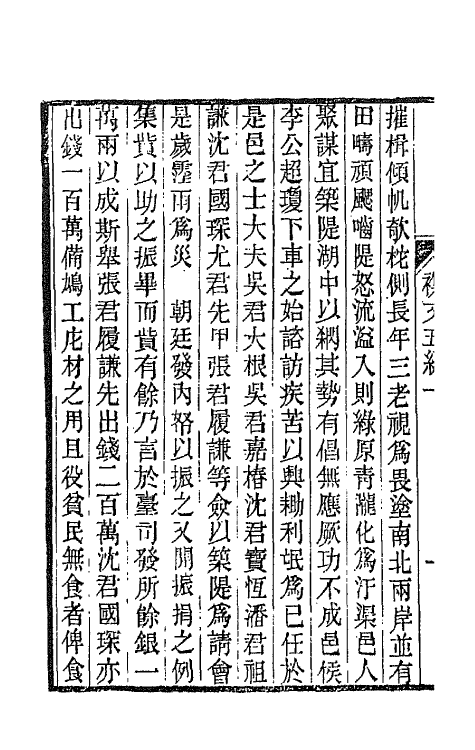 摧楫傾帆欹柁側長年三老視爲畏塗南北兩岸並有
田疇頑颸嚙隄怒流溢入則綠原靑隴化爲汙渠邑人
聚謀宜築隄湖中以綱其勢有倡無應厥功不成邑侯
李公超瓊下車之始諮訪疾苦以興耡利氓爲己任於
是邑之士大夫吳君大根吳君嘉椿沈君寶恆潘君祖
謙沈君國琛尤君先甲張君履謙等僉以築隄爲請會
是歲霪雨爲災　朝廷發內帑以振之又開振捐之例
集貲以助之振畢而貲有餘乃言於臺司發所餘銀一
萬兩以成斯舉張君履謙先出錢二百萬沈君國琛亦
出錢一百萬備鳩工庀材之用且役貧民無食者俾食
襍文五編一
一